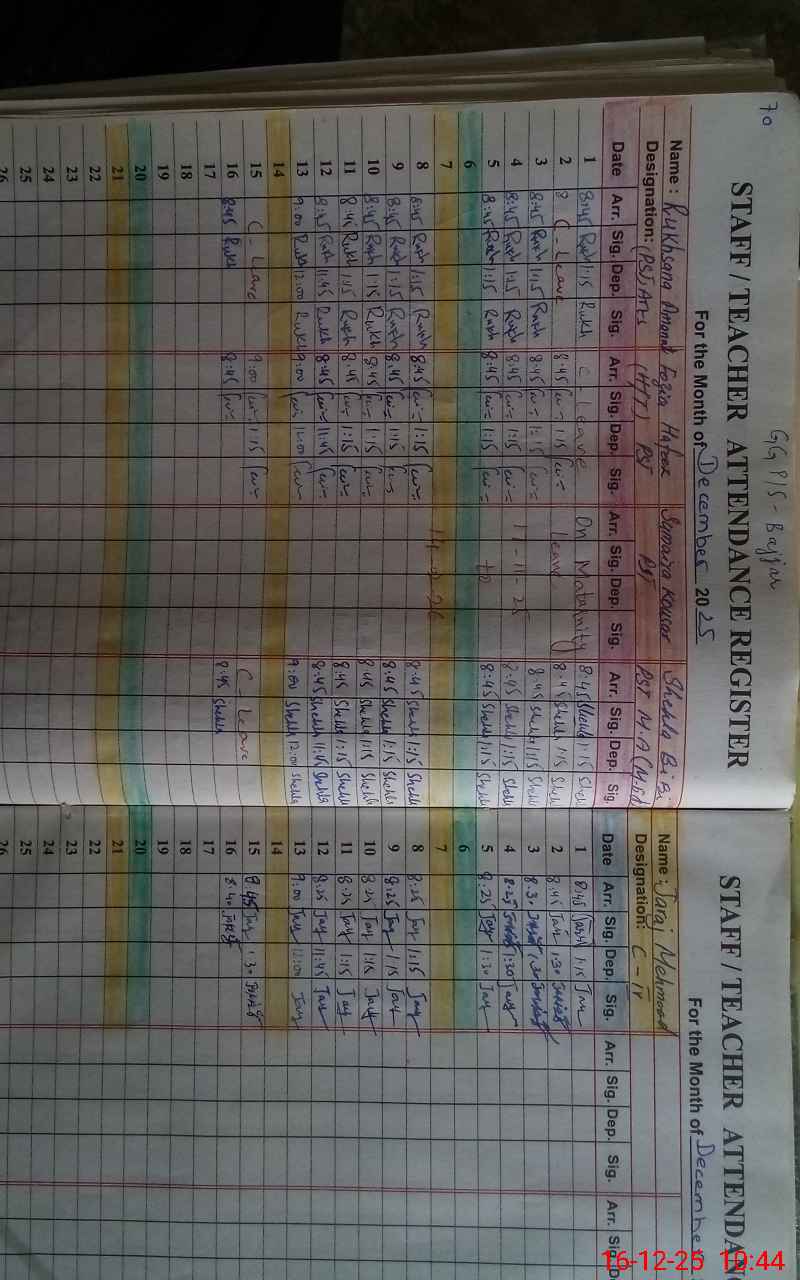 70
GGP/S - Bajjar
STAFF / TEACHER ATTENDANCE REGISTER
For the Month of December 2025
Name : Rukhsana Fozia Sumaira Kousar Shehla Bibi
Designation: (PST) Arts (HTT) PST PST PST M.A (M.Ed)
Date Arr. Sig. Dep. Sig. Arr. Sig. Dep. Sig. Arr. Sig. Dep. Sig. Arr. Sig. Dep. Sig.
1 8:45 Rukh 1:15 Rukh C - Leave On Maternity 8:45 Shehla 1:15 Shehla
2 8 C - Leave 8:45 1:15 Leave 8:45 Shehla 1:15 Shehla
3 8:45 Rukh 1:15 Rukh 8:45 1:15 8:45 Shehla 1:15 Shehla
4 8:45 Rukh 1:15 Rukh 8:45 1:15 17-11-25 8:45 Shehla 1:15 Shehla
5 8:45 Rukh 1:15 Rukh 8:45 1:15 to 8:45 Shehla 1:15 Shehla
6
7 14-2-26
8 8:45 Rukh 1:15 Rukh 8:45 1:15 8:45 Shehla 1:15 Shehla
9 8:45 Rukh 1:15 Rukh 8:45 1:15 8:45 Shehla 1:15 Shehla
10 8:45 Rukh 1:15 Rukh 8:45 1:15 8:45 Shehla 1:15 Shehla
11 8:45 Rukh 1:15 Rukh 8:45 1:15 8:45 Shehla 1:15 Shehla
12 8:45 Rukh 11:45 Rukh 8:45 11:45 8:45 Shehla 11:45 Shehla
13 9:00 Rukh 12:00 Rukh 9:00 12:00 9:00 Shehla 12:00 Shehla
14
15 C - Leave 9:00 1:15 C - Leave
16 8:45 Rukh 8:45 8:45 Shehla
17
18
19
20
21
22
23
24
25
26
STAFF / TEACHER ATTENDAN
For the Month of December
Name : Mehmood
Designation: C - IV
Date Arr. Sig. Dep. Sig. Arr. Sig. Dep. Sig. Arr. Sig. D
1 8:45 1:15
2 8:45 1:30
3 8:30 1:30
4 8:25 1:30
5 8:25 1:30
6
7
8 8:25 1:15
9 8:25 1:15
10 8:25 1:15
11 8:25 1:15
12 8:25 11:45
13 9:00 12:00
14
15 8:45 1:30
16 8:40
17
18
19
20
21
22
23
24
25
26
16-12-25 10:44